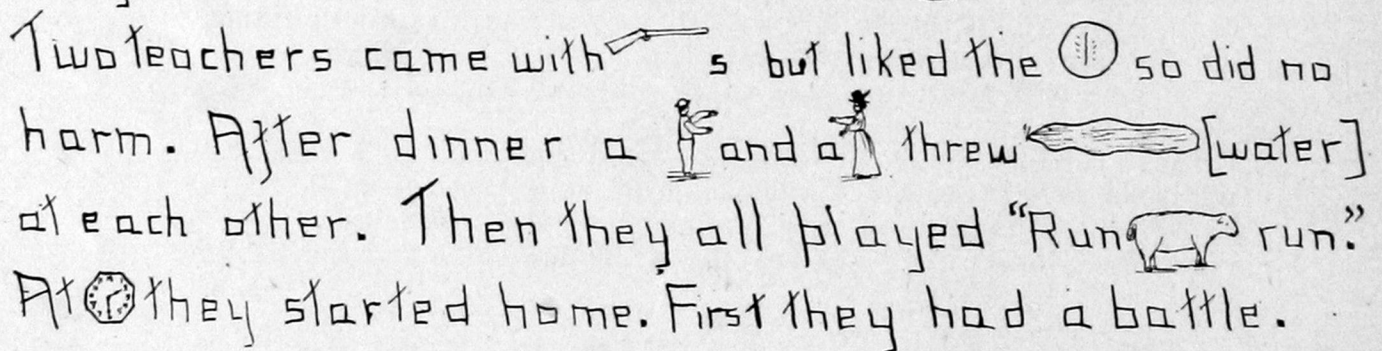 Two teachers came with s but liked the so did no
harm. After dinner a and a threw [water]
at each other. Then they all played "Run run."
At they started home. First they had a battle.